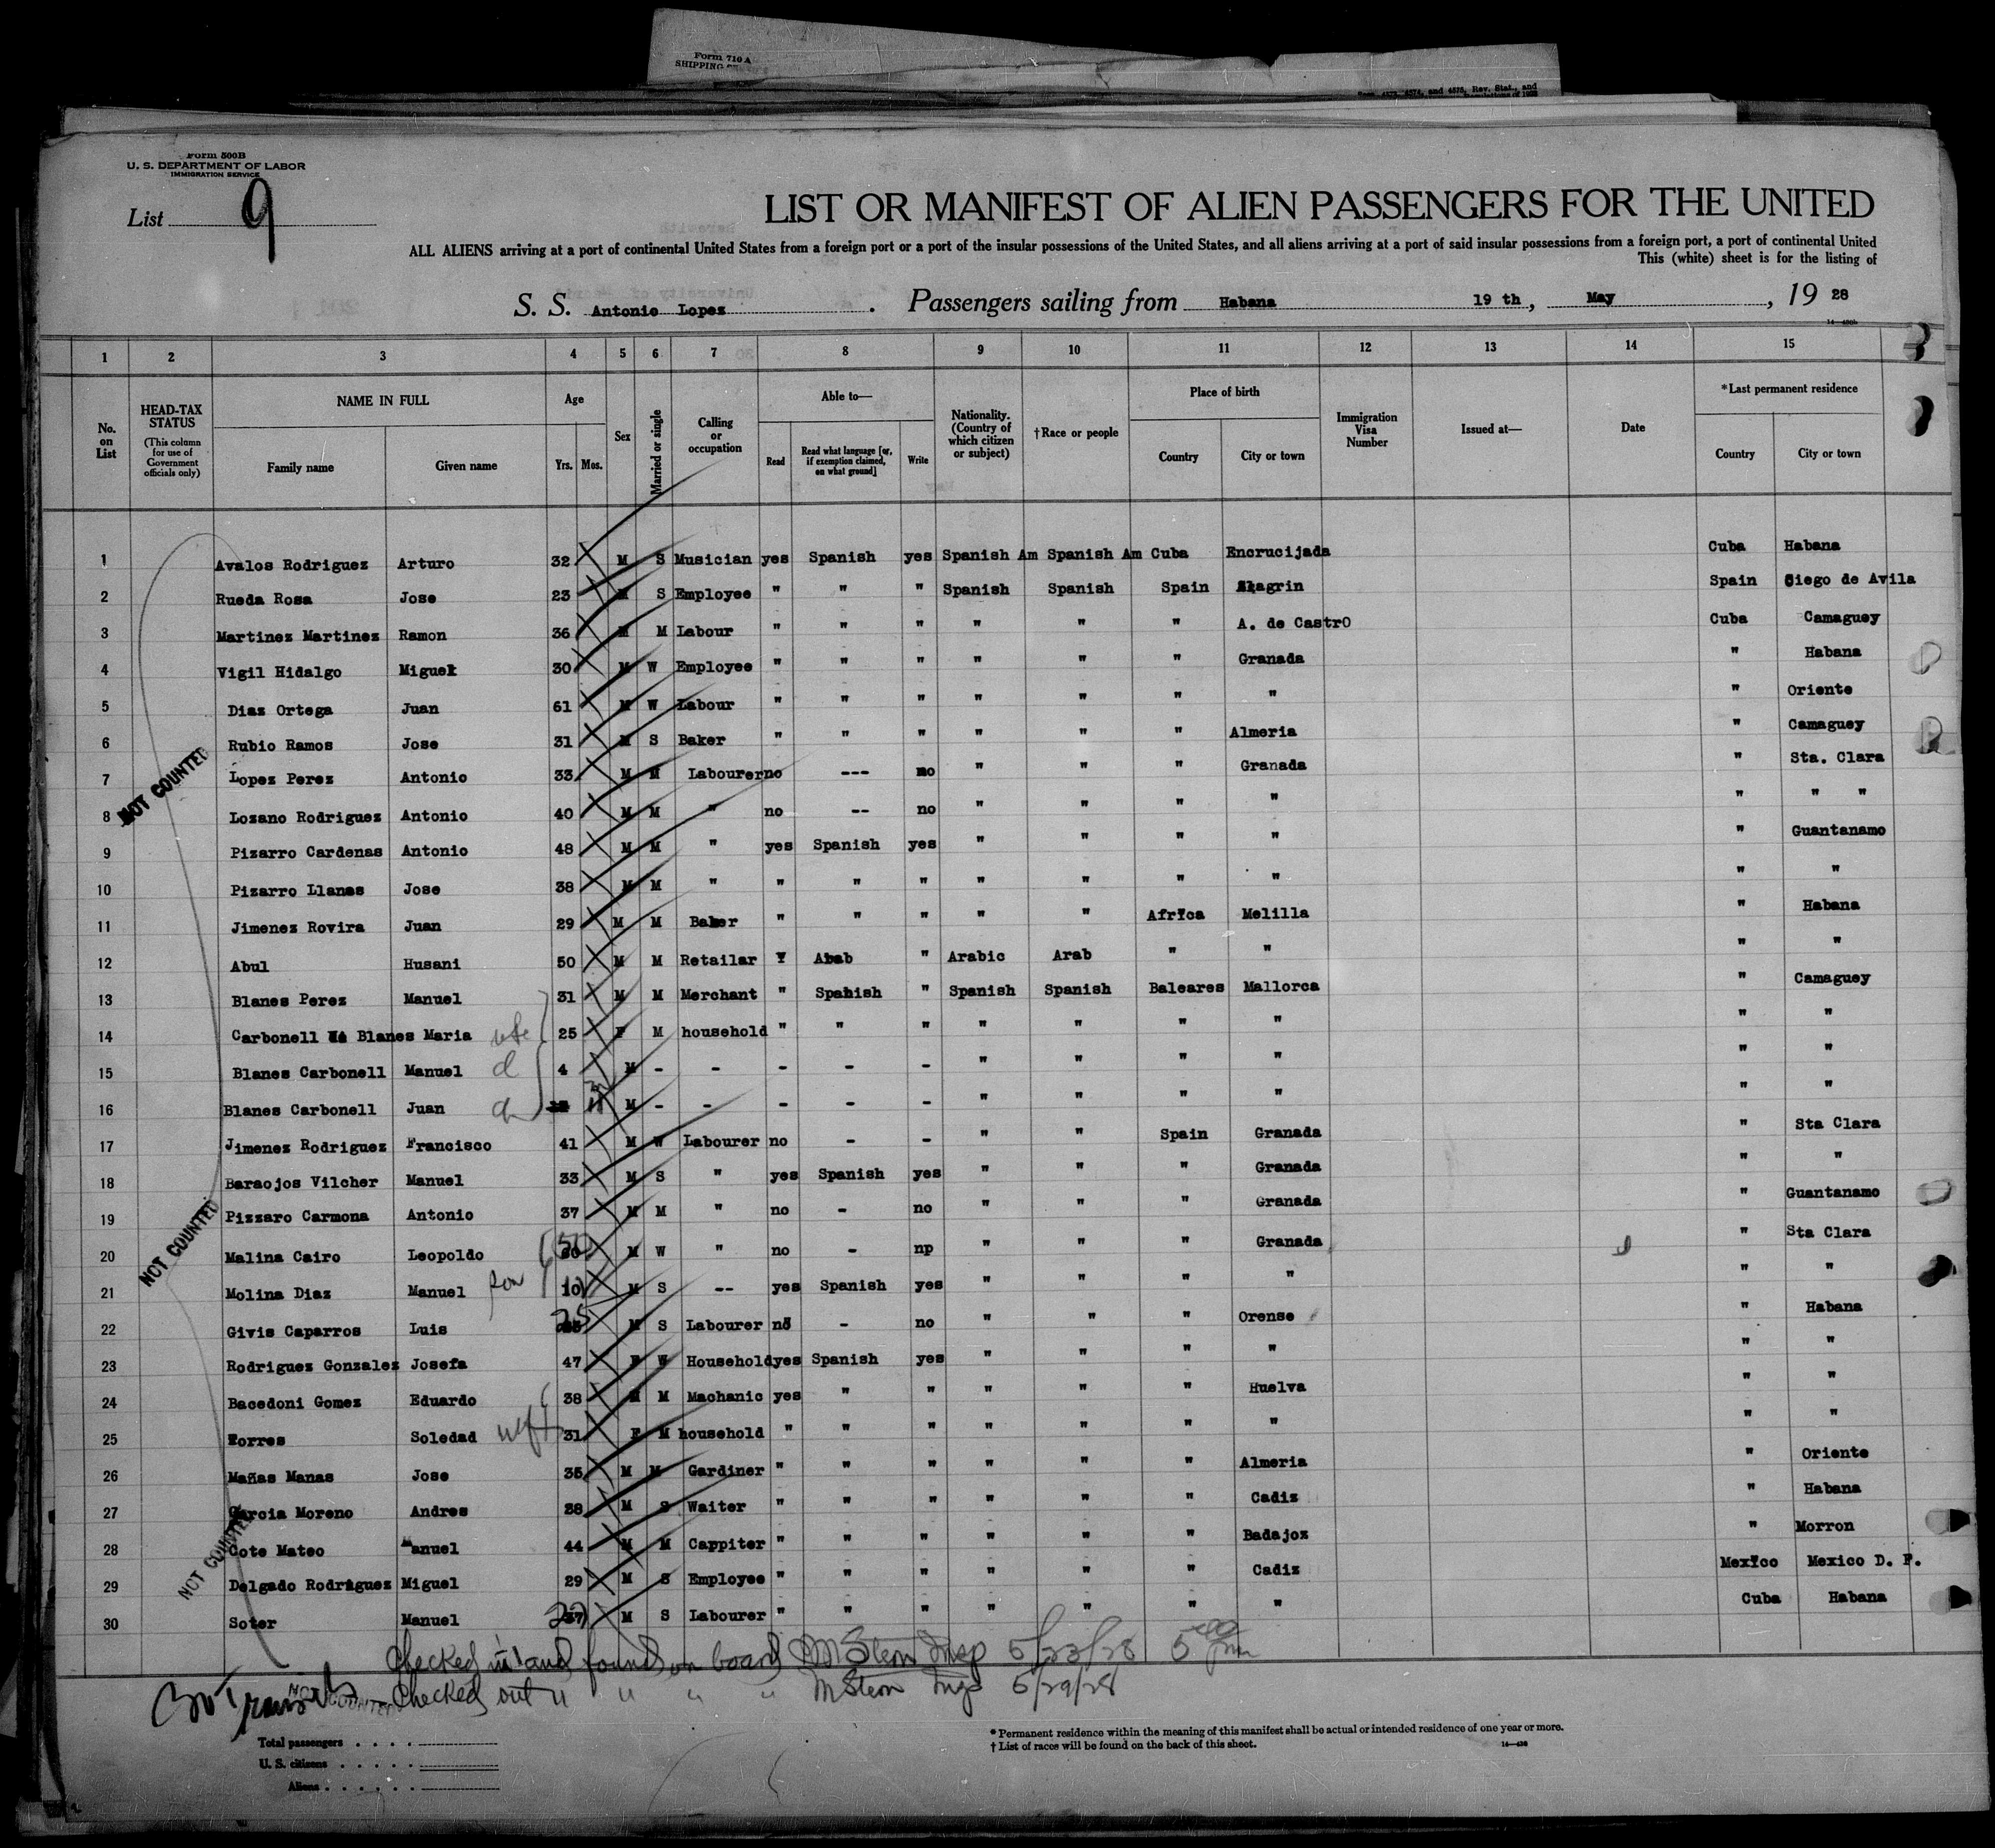 Form 710 A
SHIPPING
4573, 4574, and 4575, Rev. Stat., and
Form 500B
U. S. DEPARTMENT OF LABOR
IMMIGRATION SERVICE
List 9
LIST OR MANIFEST OF ALIEN PASSENGERS FOR THE UNITED
ALL ALIENS arriving at a port of continental United States from a foreign port or a port of the insular possessions of the United States, and all aliens arriving at a port of said insular possessions from a foreign port, a port of continental United
This (white) sheet is for the listing of
S. S. Antonio Lopez. Passengers sailing from Habana 19 th, May, 19 28
1 2 3 4 5 6 7 8 9 10 11 12 13 14 15
No. on List
HEAD-TAX STATUS (This column for use of Government officials only)
NAME IN FULL Family name Given name
Age Yrs. Mos.
Sex
Married or single
Calling or occupation
Able to— Read Read what language [or, if exemption claimed, on what ground] Write
Nationality. (Country of which citizen or subject)
†Race or people
Place of birth Country City or town
Immigration Visa Number
Issued at—
Date
*Last permanent residence Country City or town
1 Avalos Rodriguez Arturo 32 M S Musician yes Spanish yes Spanish Am Spanish Am Cuba Encrucijada Cuba Habana
2 Rueda Rosa Jose 23 M S Employee " " " Spanish Spanish Spain Alagrin Spain Ciego de Avila
3 Martinez Martinez Ramon 36 M M Labour " " " " " " A. de CastrO Cuba Camaguey
4 Vigil Hidalgo Miguel 30 M W Employee " " " " " " Granada " Habana
5 Dias Ortega Juan 61 M W Labour " " " " " " " " Oriente
6 Rubio Ramos Jose 31 M S Baker " " " " " " Almeria " Camaguey
7 Lopez Perez Antonio 33 M M Labourer no --- no " " " Granada " Sta. Clara
8 Lozano Rodriguez Antonio 40 M M " no -- no " " " " " " "
9 Pizarro Cardenas Antonio 48 M M " yes Spanish yes " " " " " Guantanamo
10 Pizarro Llanes Jose 38 M M " " " " " " " " " "
11 Jimenez Rovira Juan 29 M M Baker " " " " " Africa Melilla " Habana
12 Abul Husani 50 M M Retailar Y Abab " Arabic Arab " " " "
13 Blanes Perez Manuel 31 M M Merchant " Spanish " Spanish Spanish Baleares Mallorca " Camaguey
14 Carbonell Blanes Maria wfe 25 F M household " " " " " " " " "
15 Blanes Carbonell Manuel d 4 M - - - - - " " " " " "
16 Blanes Carbonell Juan d M - - - - - " " " " " "
17 Jimenez Rodriguez Francisco 41 M W Labourer no - - " " Spain Granada " Sta Clara
18 Baraojos Vilcher Manuel 33 M S " yes Spanish yes " " " Granada " "
19 Pizzaro Carmona Antonio 37 M M " no - no " " " Granada " Guantanamo
20 Malina Cairo Leopoldo 50 M W " no - np " " " Granada " Sta Clara
21 Molina Diaz Manuel son 10 M S -- yes Spanish yes " " " " " "
22 Givis Caparros Luis 25 M S Labourer no - no " " " Orense " Habana
23 Rodriguez Gonzales Josefa 47 F W Household yes Spanish yes " " " " " "
24 Bacedoni Gomez Eduardo 38 M M Machanic yes " " " " " Huelva " "
25 Torres Soledad wife 31 F M household " " " " " " " " "
26 Mañas Manas Jose 35 M M Gardiner " " " " " " Almeria " Oriente
27 Garcia Moreno Andres 28 M S Waiter " " " " " " Cadiz " Habana
28 Cote Mateo Manuel 44 M M Cappiter " " " " " " Badajoz " Morron
29 Delgado Rodriguez Miguel 29 M S Employee " " " " " " Cadiz Mexico Mexico D. F.
30 Soter Manuel 27 M S Labourer " " " " " " " Cuba Habana
NOT COUNTED
NOT COUNTED
NOT COUNTED
Checked in and found on board M Stern Insp 5/23/28 5 00 pm
30 Transits NOT COUNTED Checked out " " " " M Stern Insp 5/29/28
Total passengers
U. S. citizens
Aliens
* Permanent residence within the meaning of this manifest shall be actual or intended residence of one year or more.
† List of races will be found on the back of this sheet.